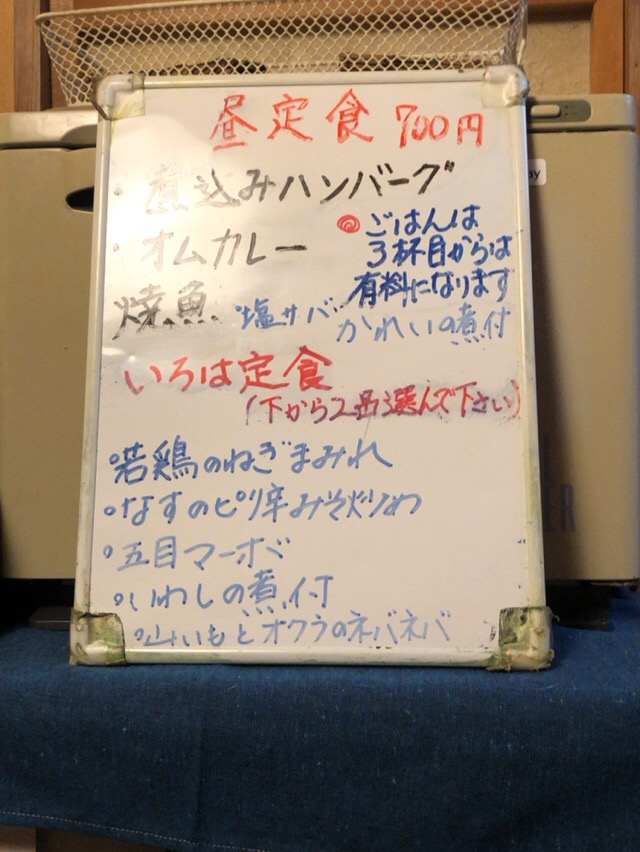 昼定食 700円
煮込みハンバーグ
オムカレー
ごはんは
3杯目からは
有料になります
焼魚 塩サバ かれいの煮付
いろは定食
(下から2品選んで下さい)
若鶏のねぎまみれ
なすのピリ辛みそ炒め
五目マーボー
いわしの煮付
山いもとオクラのネバネバ